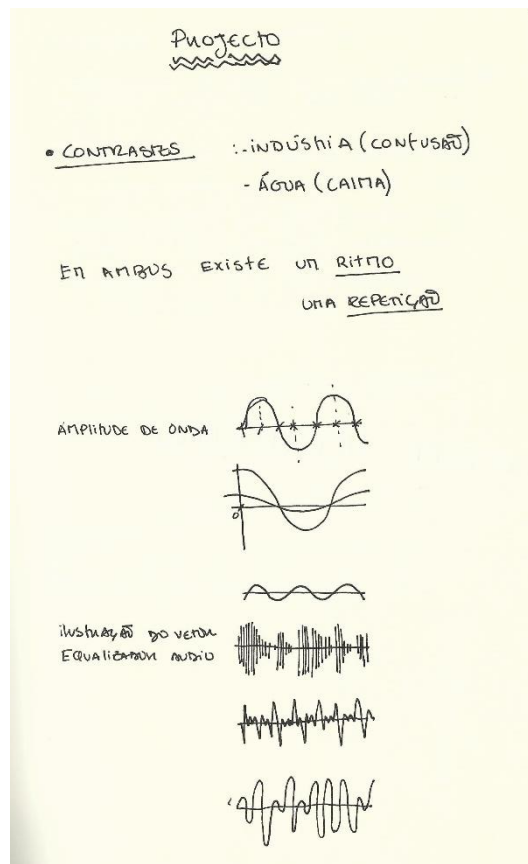 PROJECTO
• CONTRASTES :- INDÚSTRIA (CONFUSÃO)
- ÁGUA (CALMA)
EM AMBOS EXISTE UM RITMO
UMA REPETIÇÃO
AMPLITUDE DE ONDA
0
ILUSTRAÇÃO DO VETOR
EQUALIZADOR AUDIO